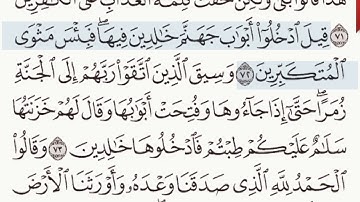 هَذَا قَالُوا بَلَىٰ وَلَٰكِنْ حَقَّتْ كَلِمَةُ الْعَذَابِ عَلَى الْكَافِرِينَ
٧١ قِيلَ ادْخُلُوا أَبْوَابَ جَهَنَّمَ خَالِدِينَ فِيهَا ۖ فَبِئْسَ مَثْوَى
الْمُتَكَبِّرِينَ ٧٢ وَسِيقَ الَّذِينَ اتَّقَوْا رَبَّهُمْ إِلَى الْجَنَّةِ
زُمَرًا ۖ حَتَّىٰ إِذَا جَاءُوهَا وَفُتِحَتْ أَبْوَابُهَا وَقَالَ لَهُمْ خَزَنَتُهَا
سَلَامٌ عَلَيْكُمْ طِبْتُمْ فَادْخُلُوهَا خَالِدِينَ ٧٣ وَقَالُوا
الْحَمْدُ لِلَّهِ الَّذِي صَدَقَنَا وَعْدَهُ وَأَوْرَثَنَا الْأَرْضَ